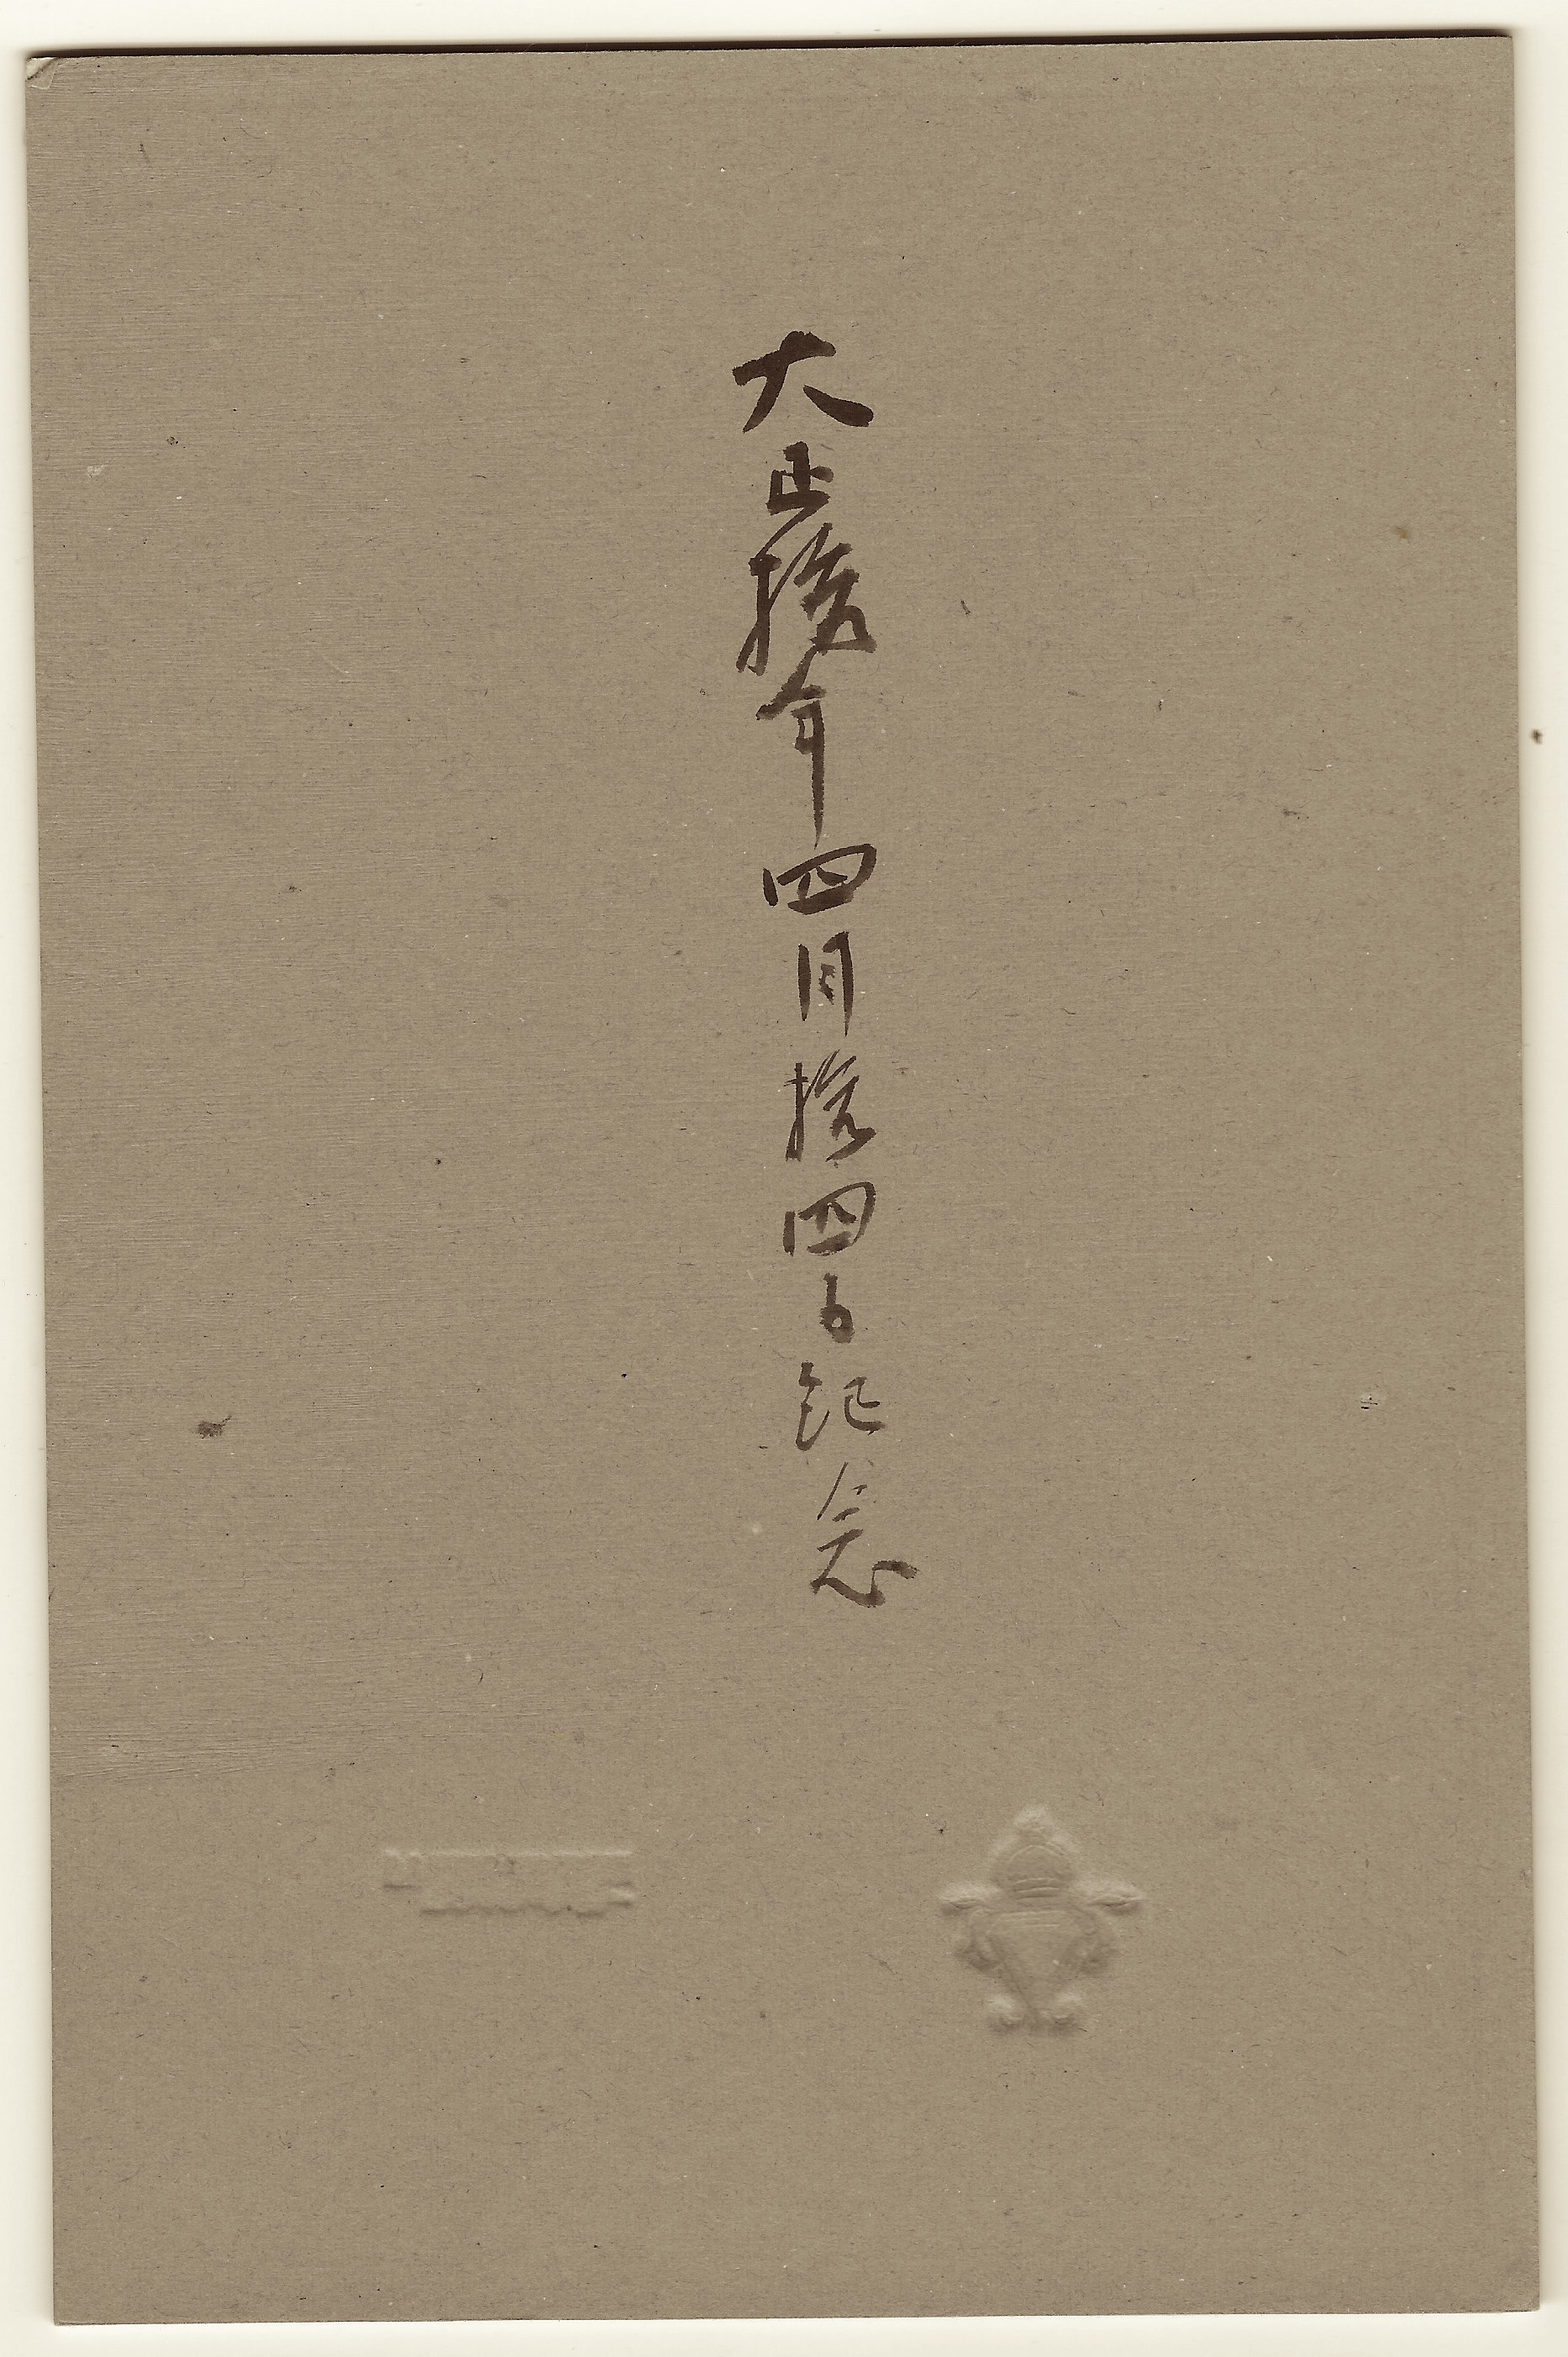 大正拾年四月拾四日記念